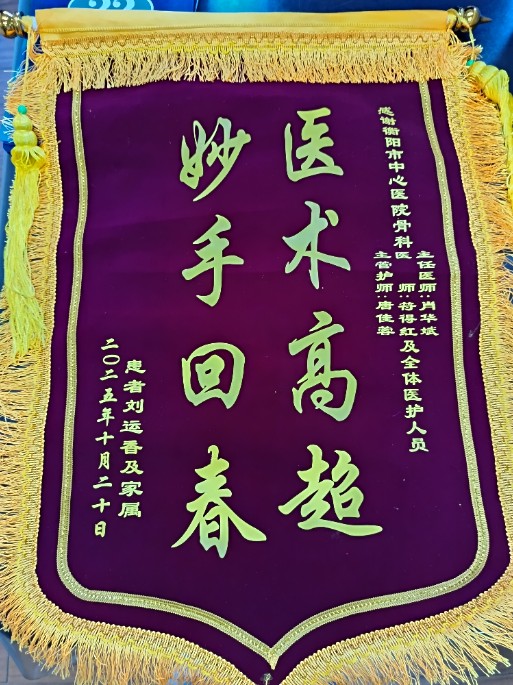 感谢衡阳市中心医院骨科
主任医师:肖华斌
医师:符得红及全体医护人员
主管护师:唐佳蓉
医术高超
妙手回春
患者刘运香及家属
二〇二五年十月二十日